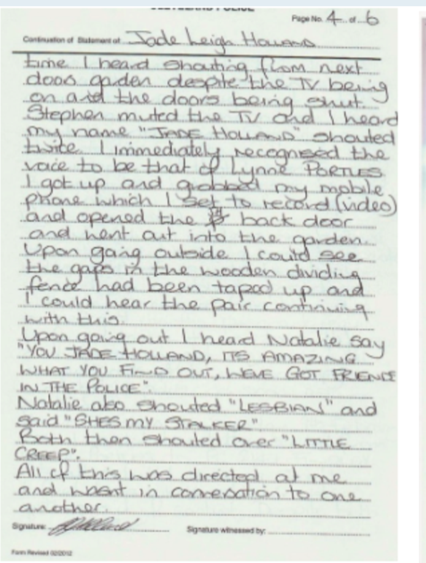 CLEVELAND POLICE
Page No. 4 of 6
Continuation of Statement of Jade Leigh Holland
time I heard shouting from next
door garden despite the TV being
on and the doors being shut.
Stephen muted the TV and I heard
my name "JADE HOLLAND" shouted
twice. I immediately recognised the
voice to be that of Lynne PORTUES
I got up and grabbed my mobile
phone which I set to record (video)
and opened the back door
and went out into the garden.
Upon going outside I could see
the gaps in the wooden dividing
fence had been taped up and
I could hear the pair continuing
with this.
Upon going out I heard Natalie say
"YOU JADE HOLLAND, ITS AMAZING
WHAT YOU FIND OUT, WEVE GOT FRIENDS
IN THE POLICE".
Natalie also shouted "LESBIAN" and
said "SHES MY STALKER"
Both then shouted over "LITTLE
CREEP".
All of this was directed at me
and wasnt in conversation to one
another.
Signature: Signature witnessed by:
Form Revised 02/2012